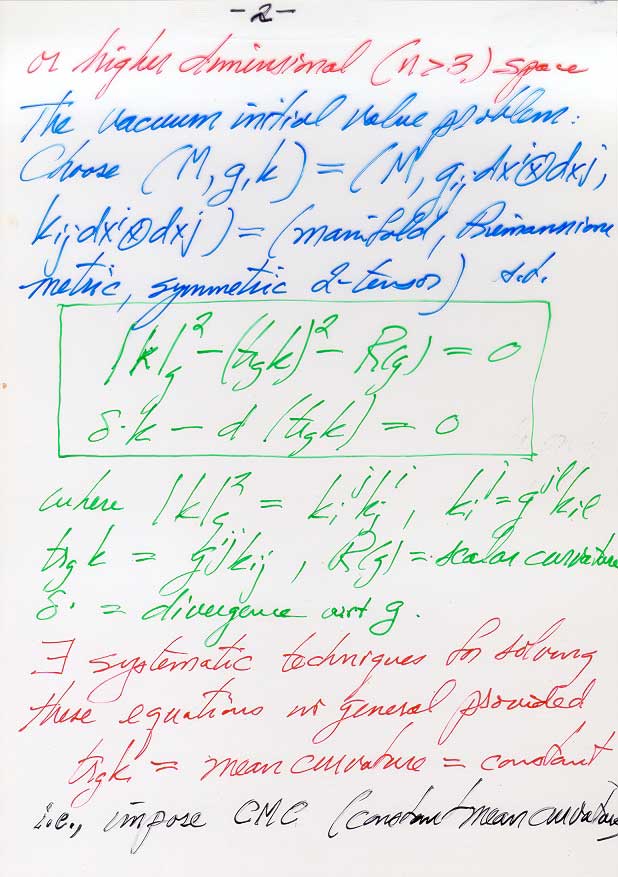 -2-
or higher dimensional (n>3) space
The vacuum initial value problem:
Choose (M, g, k) = (M, gᵢⱼ dxⁱ⊗dxʲ,
kᵢⱼ dxⁱ⊗dxʲ) = (manifold, Riemannian
metric, symmetric 2-tensor) s.t.
|k|²_g − (tr_g k)² − R(g) = 0
δ·k − d(tr_g k) = 0
where |k|²_g = kᵢʲkⱼⁱ, kᵢʲ = gʲˡkᵢₗ
tr_g k = gⁱʲkᵢⱼ, R(g) = scalar curvature
δ· = divergence wrt g.
∃ systematic techniques for solving
these equations in general provided
tr_g k = mean curvature = constant
i.e., impose CMC (constant mean curvature